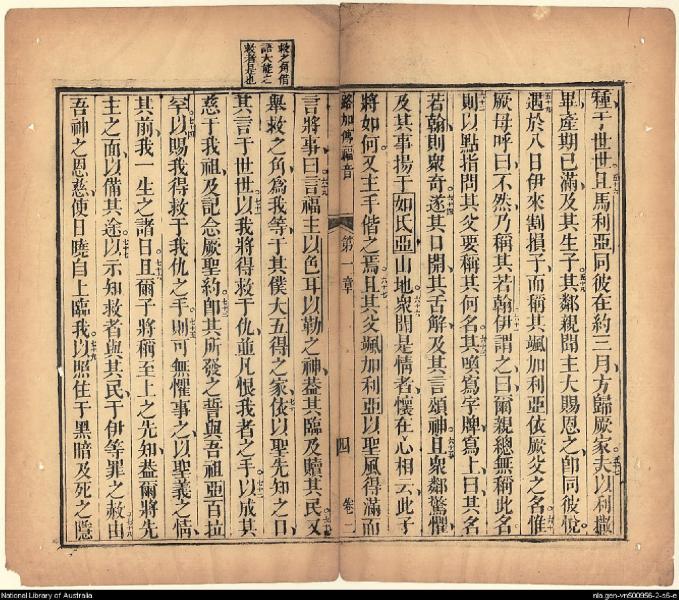 種于世世且馬利亞同彼在約三月方歸厥家夫以利撒
畢產期已滿及其生子其鄰親聞主大賜恩之卽同彼悅
遇於八日伊來割損子而稱其颯加利亞依厥父之名惟
厥母呼曰不然乃稱其若翰伊謂之曰爾親總無稱此名
則以點指問其父要稱其何名其喚寫字牌寫上曰其名
若翰則眾奇遂其口開其舌解及其言頌神且眾鄰驚懼
及其事揚于如氏亞山地眾聞是情者懷在心相云此子
將如何又主手偕之焉且其父颯加利亞以聖風得滿而
路加傳福音 第一章 四 卷二
言將事曰言福主以色耳以勒之神葢其臨及贖其民又
舉救之角爲我等于其僕大五得之家依以聖先知之口
其言于世世以我將得救于仇並凡恨我者之手以成其
慈于我祖及記念厥聖約卽其所發之誓與吾祖亞百拉
罕以賜我得救于我仇之手則可無懼事之以聖義之情
其前我一生之諸日且爾子將稱至上之先知葢爾將先
主之面以備其途以示知救者與其民于伊等罪之赦由
吾神之恩慈使日曉自上臨我以照住于黑暗及死之隱
救之角借
語大能之
救者是也
National Library of Australia
nla.gen-vn500956-2-s6-e